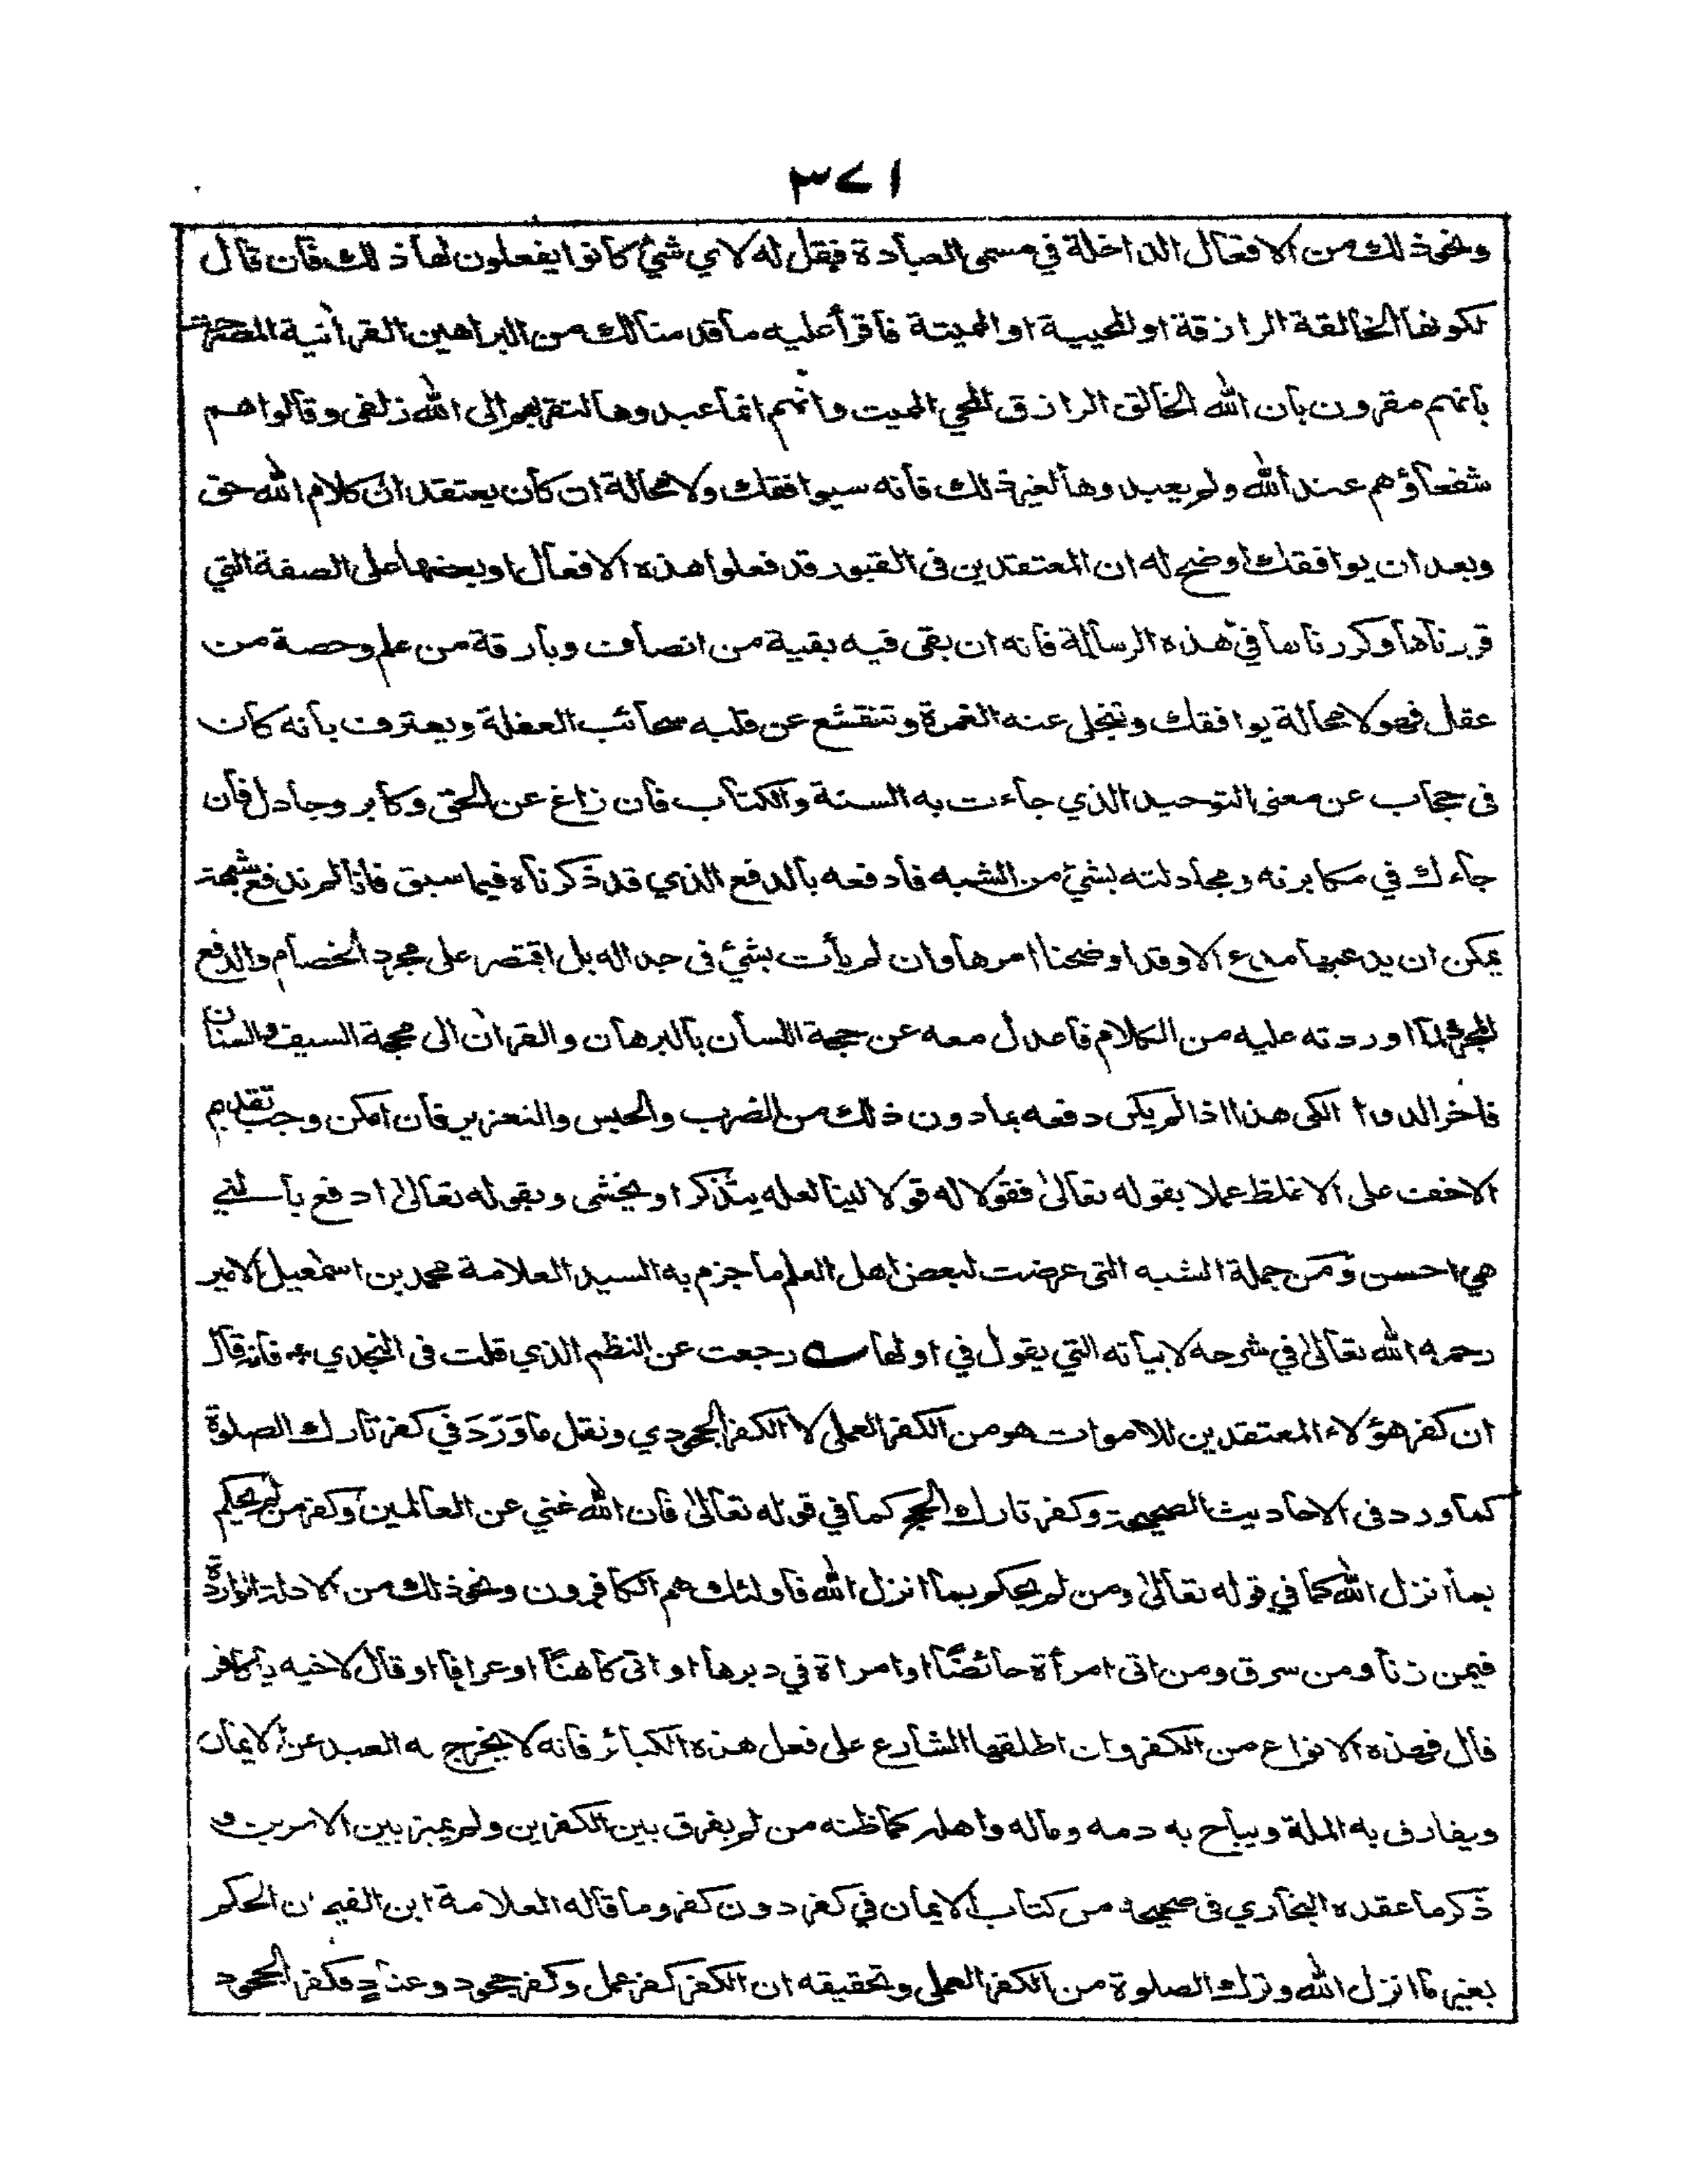 ٣٧١
ونحو ذلك من الافعال الداخلة في مسمى العبادة فقل له لاي شئ كانوا يفعلون لها ذلك فان قال
لكونها الخالقة الرازقة او المحيية او المميتة فاقرأ عليه ما قدمنا لك من البراهين القرآنية المصرحة
بانهم مقرون بان الله الخالق الرازق المحي المميت وانهم انما عبدوها لتقربهم الى الله زلفى وقالوا هم
شفعاؤهم عند الله ولم يعبدوها لغير ذلك فانه سيوافقك ولا محالة ان كان يعتقد ان كلام الله حق
وبعد ان يوافقك اوضح له ان المعتقدين في القبور قد فعلوا هذه الافعال او بعضها على الصفة التي
قررناها وكررناها في هذه الرسالة فانه ان بقى فيه بقية من انصاف وبارقة من علم وحصة من
عقل فهو لا محالة يوافقك وتنجلى عنه الغمرة وتنقشع عن قلبه سحائب الغفلة ويعترف بانه كان
في حجاب عن معنى التوحيد الذي جاءت به السنة والكتاب فان زاغ عن الحق وكابر وجادل فان
جاءك في مكابرته ومجادلته بشئ من الشبه فادفعه بالدفع الذي قد ذكرناه فيما سبق فانا لم ندفع شبهة
يمكن ان يدعيها مدع الا وقد اوضحنا امرها وان لم يأت بشئ في جداله بل اقتصر على مجرد الخصام والدفع
المجرد لما اوردته عليه من الكلام فاعدل معه عن حجة اللسان بالبرهان والقران الى محجة السيف والسنان
فاخر الدواء الكي هذا اذا لم يكن دفعه بما دون ذلك من الضرب والحبس والتعزير فان امكن وجب تقديم
الاخف على الاغلظ عملا بقوله تعالى فقولا له قولا لينا لعله يتذكر او يخشى وبقوله تعالى ادفع بالتي
هي احسن ومن جملة الشبه التي عرضت لبعض اهل العلم ما جزم به السيد العلامة محمد بن اسمعيل الامير
رحمه الله تعالى في شرحه لابياته التي يقول في اولها رجعت عن النظم الذي قلت في النجدي * فانه قال
ان كفر هؤلاء المعتقدين للاموات هو من الكفر العملي لا الكفر الجحودي ونقل ما وَرَدَ في كفر تارك الصلوة
كما ورد في الاحاديث الصحيحة وكفر تارك الحج كما في قوله تعالى فان الله غني عن العالمين وكفر من لم يحكم
بما انزل الله كما في قوله تعالى ومن لم يحكم بما انزل الله فاولئك هم الكافرون ونحو ذلك من الادلة الواردة
فيمن زنا ومن سرق ومن اتى امرأة حائضًا او امراة في دبرها او اتى كاهنًا او عرافا او قال لاخيه يا كافر
قال فهذه الانواع من الكفر وان اطلقها الشارع على فعل هذه الكبائر فانه لا يخرج به العبد عن الايمان
ويفارق به الملة ويباح به دمه وماله واهله كما ظنه من لم يفرق بين الكفرين ولم يميز بين الامرين و
ذكر ما عقده البخاري في صحيحه من كتاب الايمان في كفر دون كفر وما قاله العلامة ابن القيم ان الحكم
بغير ما انزل الله وترك الصلوة من الكفر العملي وتحقيقه ان الكفر كفر عمل وكفر جحود وعنادٍ فكفر الجحود